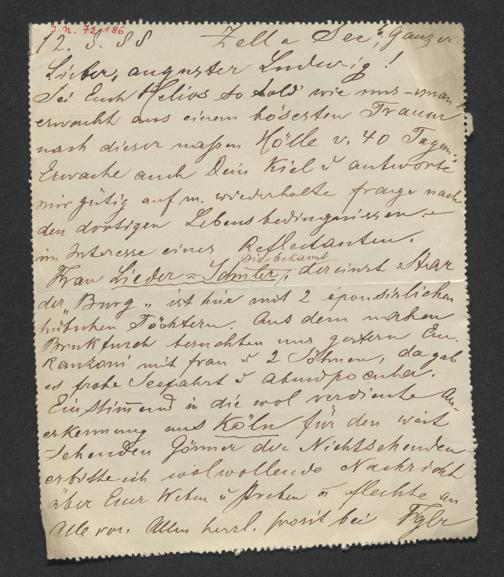 J.N. 72.186
12. 8. 88 Zell a See, Ganzer
Lieber, Ludwig!
Sei Euch Helios so hold wie uns – man
erwacht aus einem bösesten Traum
nach dieser naßen Hölle v. 40 Tagen.
Erwache auch Dein Kiel u antworte
mir gütig auf m. wiederholte frage nach
den dortigen Lebensbedingnissen –
im Interesse eines Reflectanten.
Dir bekannt
Frau Lieder = , dereinst Star
der "Burg" ist hier mit 2
hübschen Töchtern. Aus dem nahen
Bruk besuchten uns gestern Em.
Ranzoni mit frau u 2 Söhnen, da gab
es frohe Seefahrt u
Einstimend in die wol verdiente An-
erkennung aus Köln für den weit
sehenden Gönner der Nichtsehenden
erbitte ich wolwollende Nachricht
über Euer Weben u Streben u flechte an
Alle von Allen herzl. prosit bei